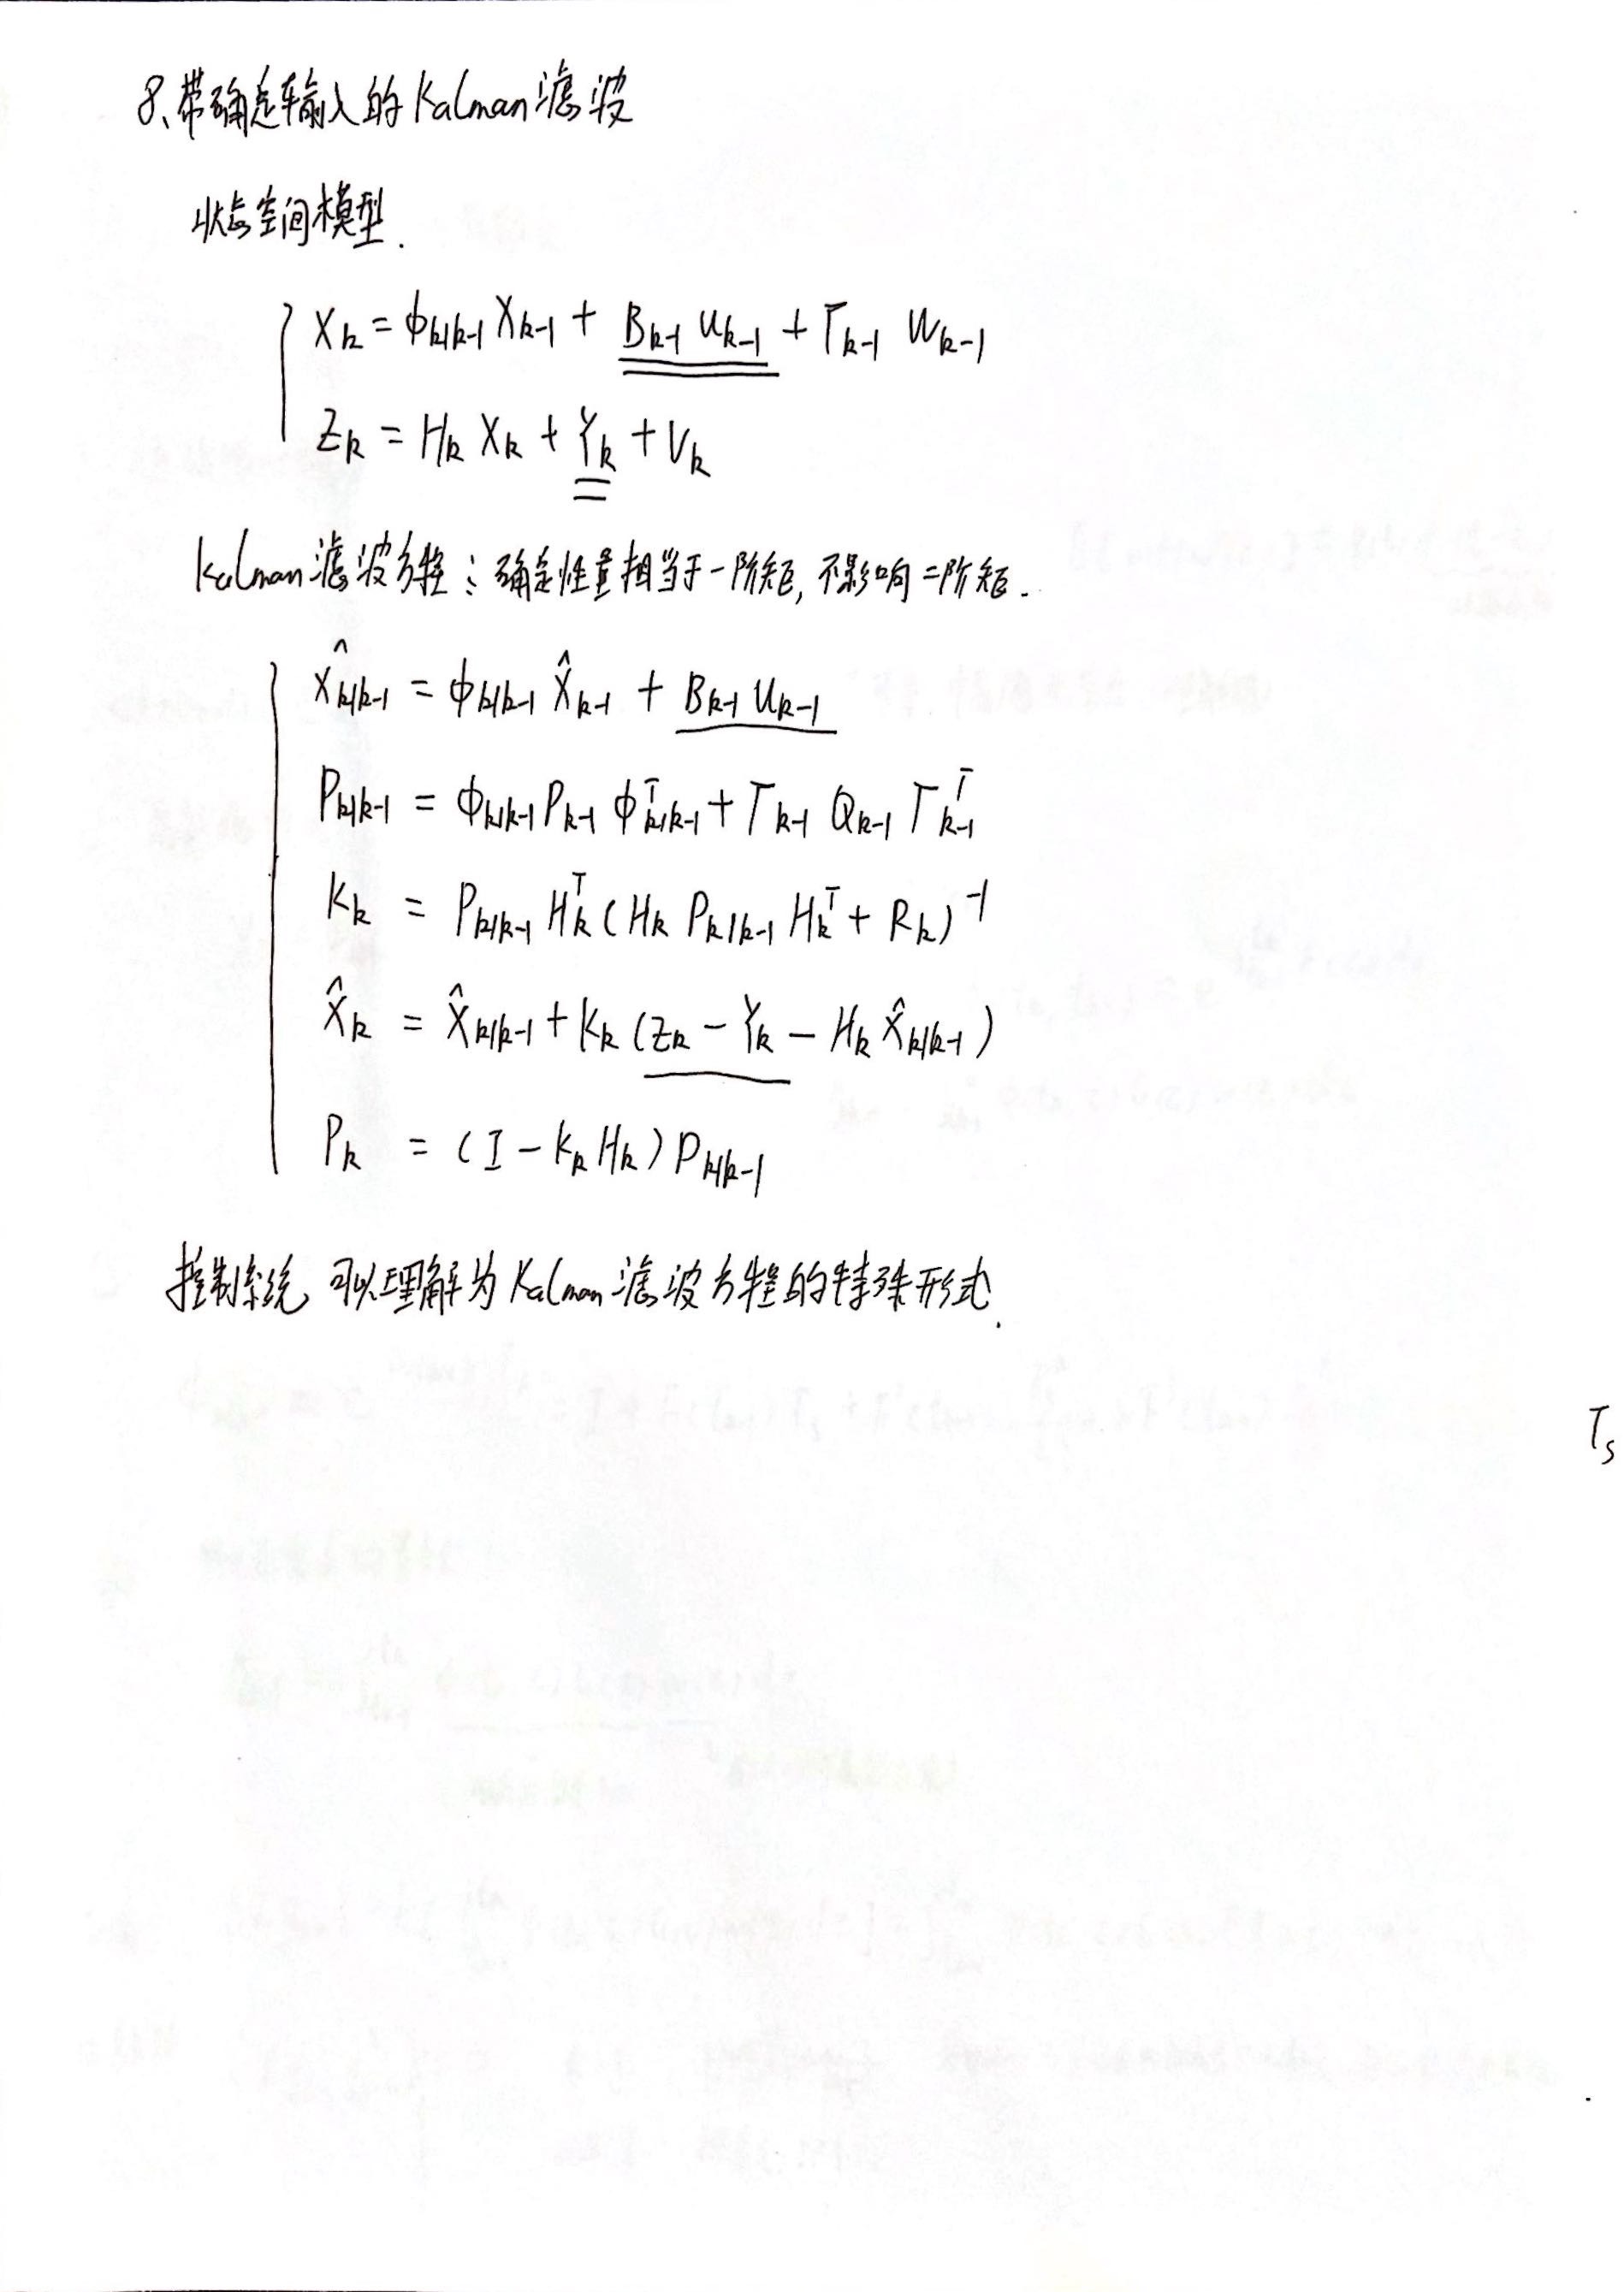 8、带确定输入的Kalman滤波
状态空间模型.
X_k = ϕ_{k|k-1} X_{k-1} + B_{k-1} u_{k-1} + Γ_{k-1} W_{k-1}
Z_k = H_k X_k + Y_k + V_k
Kalman滤波方程:确定性量相当于一阶矩,不影响二阶矩.
X̂_{k|k-1} = ϕ_{k|k-1} X̂_{k-1} + B_{k-1} u_{k-1}
P_{k|k-1} = ϕ_{k|k-1} P_{k-1} ϕ^T_{k|k-1} + Γ_{k-1} Q_{k-1} Γ^T_{k-1}
K_k = P_{k|k-1} H_k^T (H_k P_{k|k-1} H_k^T + R_k)^{-1}
X̂_k = X̂_{k|k-1} + K_k (Z_k - Y_k - H_k X̂_{k|k-1})
P_k = (I - K_k H_k) P_{k|k-1}
控制系统 可以理解为Kalman滤波方程的特殊形式.
T_s